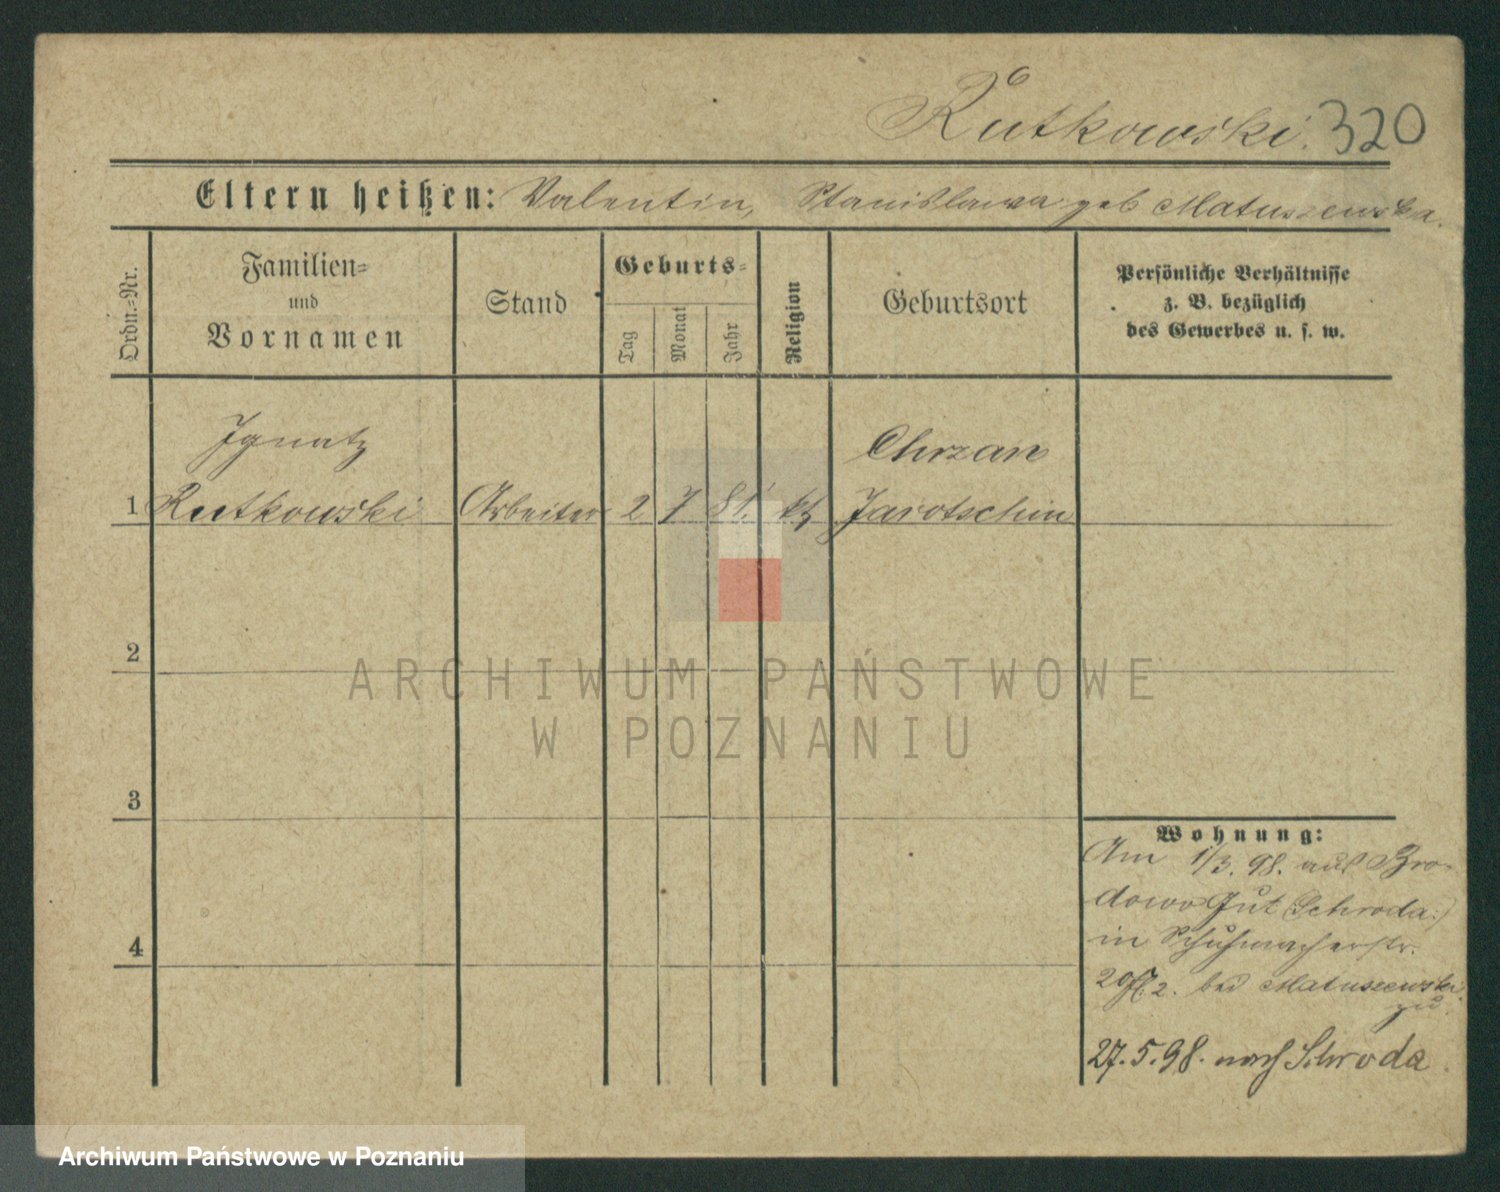 Rutkowski. 320
Eltern heißen: Valentin, Stanislawa geb Matuszewska.
Ordn.=Nr.
Familien=
und
Vornamen
Stand
Geburts=
Tag
Monat
Jahr
Religion
Geburtsort
Persönliche Verhältnisse
z. B. bezüglich
des Gewerbes u. s. w.
Ignatz
Chrzan
1 Rutkowski Arbeiter 2 7 81. kt Jarotschin
2
ARCHIWUM PAŃSTWOWE
W POZNANIU
3
Wohnung:
Am 1/3. 98. aus Bro-
dowo Gut Schroda:)
in Schuhmacherstr.
20 2. bei Matuszewski
zu.
4
27.5.98. nach Schroda
Archiwum Państwowe w Poznaniu